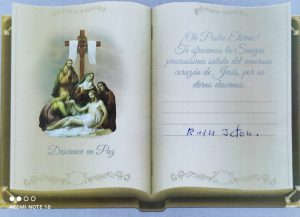 Descance en Paz
¡Oh Padre Eterno!
Te ofrecemos la Sangre
preciosísima salida del amoroso
corazón de Jesús, por su
eterno descanso.
REDMI NOTE 10